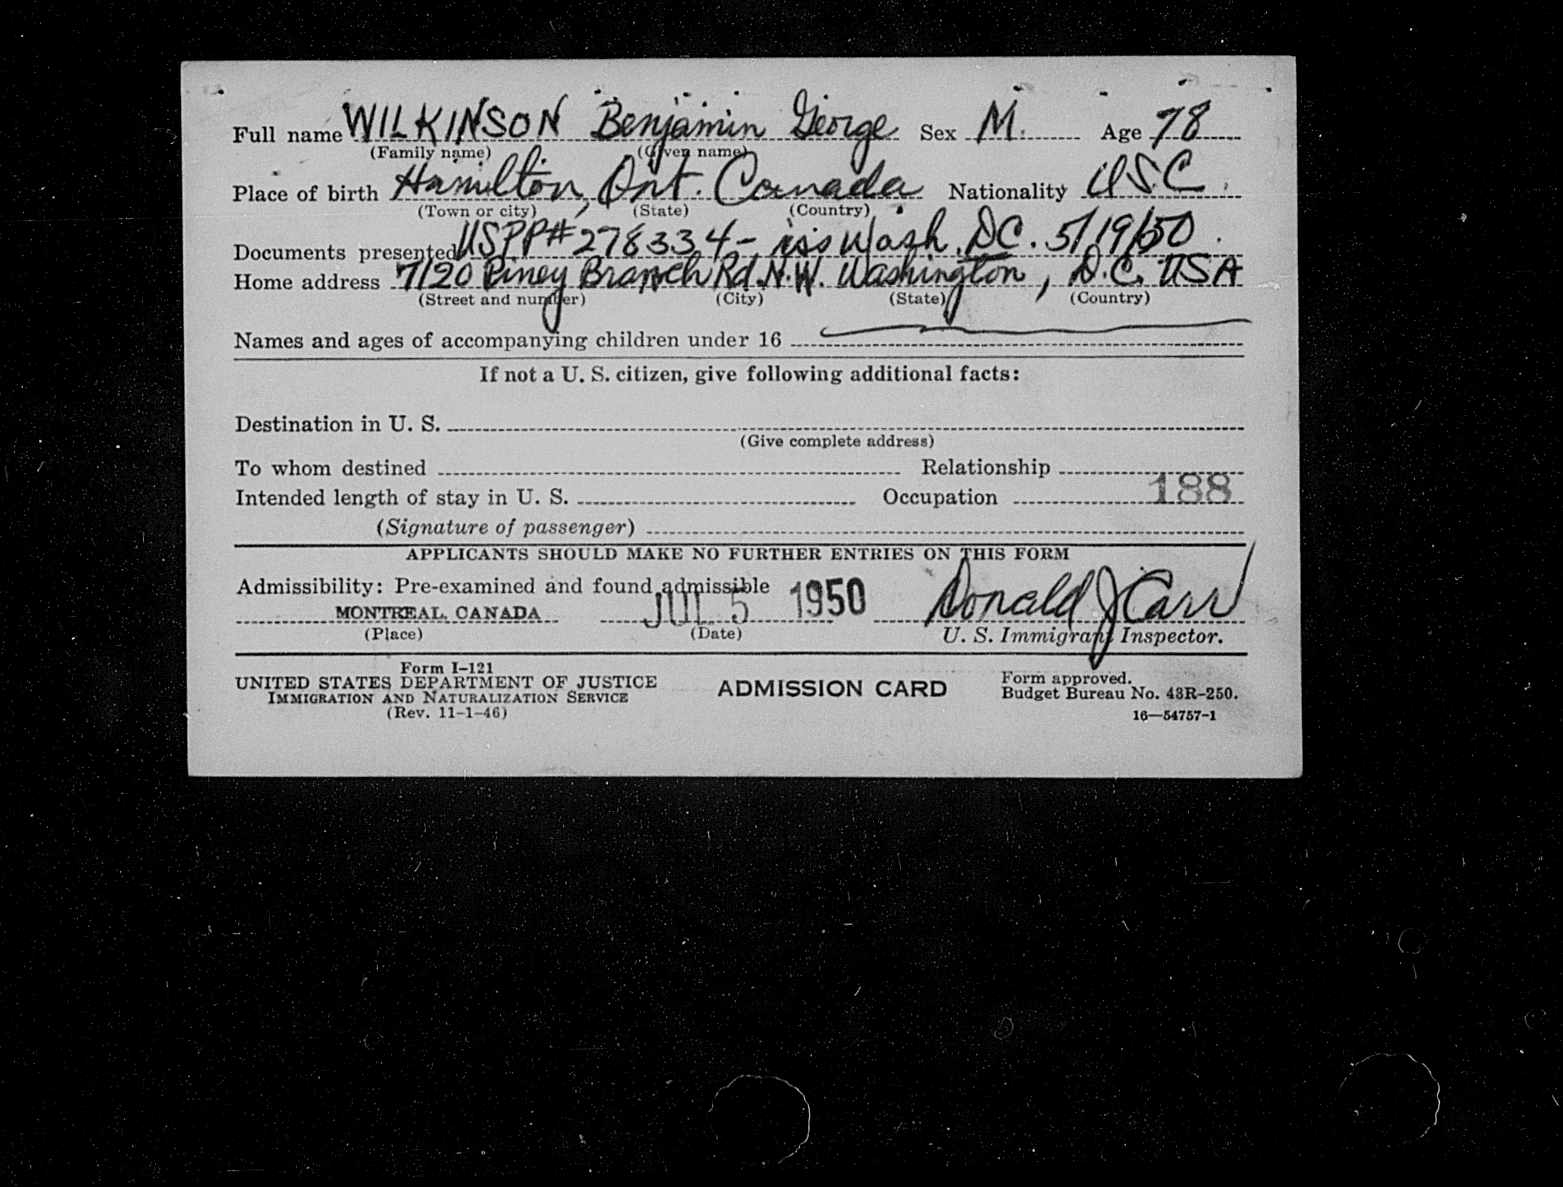 Full name WILKINSON Benjamin George Sex M. Age 78
(Family name) (Given name)
Place of birth Hamilton, Ont. Canada Nationality USC.
(Town or city) (State) (Country)
Documents presented USPP# 278334 - iss Wash. DC. 5/19/50.
Home address 7120 Piney Branch Rd. N.W. Washington, D.C. USA
(Street and number) (City) (State) (Country)
Names and ages of accompanying children under 16
If not a U. S. citizen, give following additional facts:
Destination in U. S.
(Give complete address)
To whom destined Relationship
Intended length of stay in U. S. Occupation 188
(Signature of passenger)
APPLICANTS SHOULD MAKE NO FURTHER ENTRIES ON THIS FORM
Admissibility: Pre-examined and found admissible
MONTREAL, CANADA JUL 5 1950 Donald J Carr
(Place) (Date) U. S. Immigrant Inspector.
Form I-121
UNITED STATES DEPARTMENT OF JUSTICE
IMMIGRATION AND NATURALIZATION SERVICE
(Rev. 11-1-46)
ADMISSION CARD
Form approved.
Budget Bureau No. 43R-250.
16—54757-1